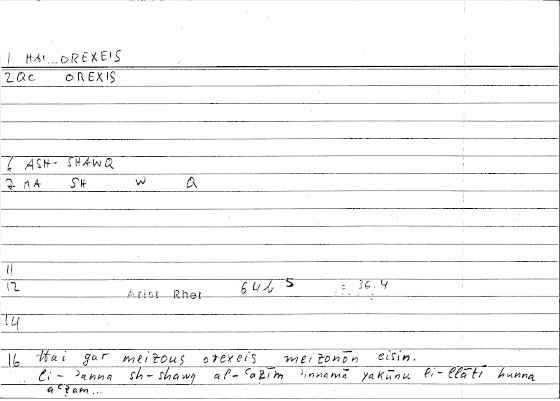 1 HAI...OREXEIS
2 QC OREXIS
6 ASH-SHAWQ
7 MA SH W Q
11
12 Arist Rhet 64b 5 = 36.4
14
16 Hai gar meizous orexeis meizonōn eisin.
li-ʾanna sh-shawq al-ʿaẓīm ʾinnamā yakūnu li-llātī hunna
aʿẓam...